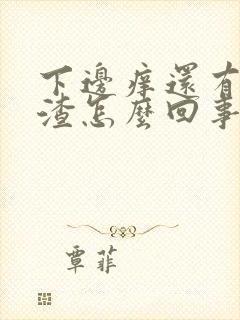 下邊癢還有
渣怎麼回事
覃菲